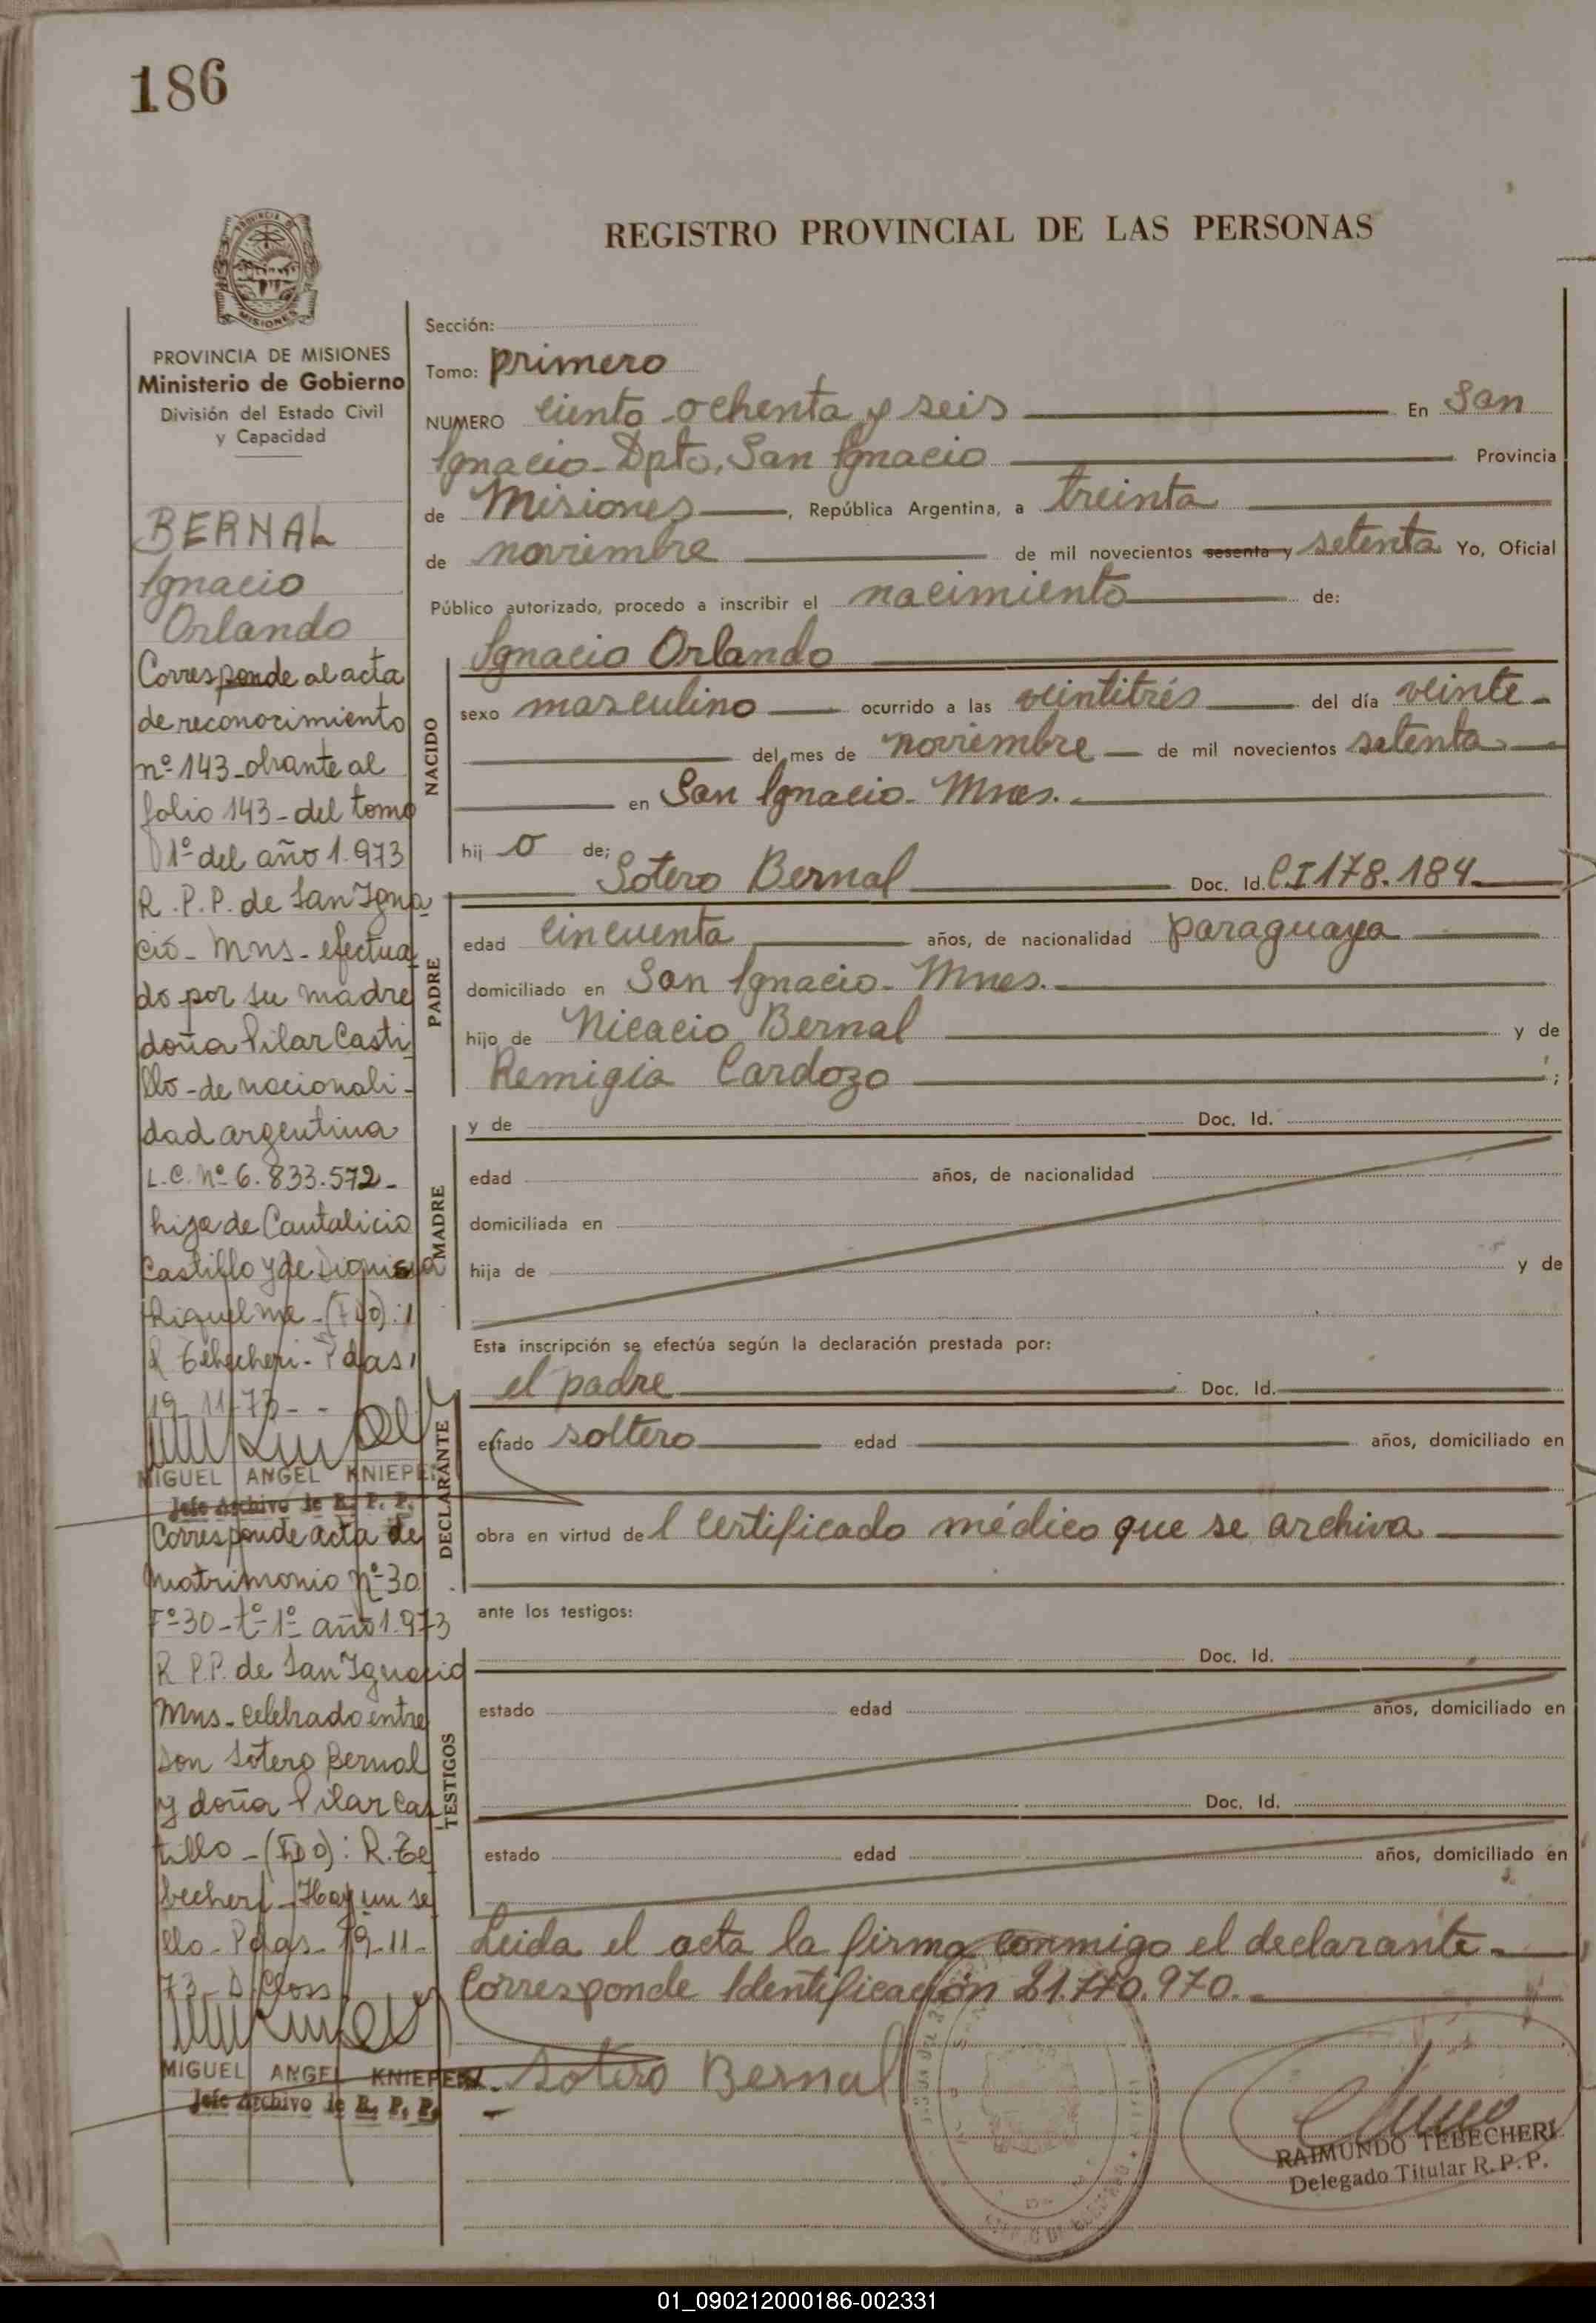 186
REGISTRO PROVINCIAL DE LAS PERSONAS
PROVINCIA DE MISIONES
Ministerio de Gobierno
División del Estado Civil
y Capacidad
BERNAL
Ignacio
Orlando
Corresponde al acta
de reconocimiento
nº 143 - obrante al
folio 143 - del tomo
1º del año 1.973
R.P.P. de San Igna
cio - Mns - efectua
do por su madre
doña Pilar Casti
llo - de nacionali-
dad argentina
L.C. Nº 6.833.572 -
hija de Cantalicio
Castillo y de
Riquelme - (FDO):
R Tebecheri - Pdas,
19-11-73 -
MIGUEL ANGEL KNIEPER
Jefe Archivo de R. P. P.
Corresponde acta de
matrimonio nº 30
Fº 30 - tº 1º año 1.973
R.P.P. de San Ignacio
Mns - celebrado entre
Don Sotero Bernal
y doña Pilar Cas
tillo - (FDO): R. Te
becheri - Hay un se
llo - Pdas - 19-11-
73 - D. Closs
MIGUEL ANGEL KNIEPER
Jefe Archivo de R. P. P.
Sección:
Tomo: primero
NUMERO ciento ochenta y seis En San
Ignacio - Dpto. San Ignacio Provincia
de Misiones, República Argentina, a treinta
de noviembre de mil novecientos sesenta y setenta Yo, Oficial
Público autorizado, procedo a inscribir el nacimiento de:
NACIDO
Ignacio Orlando
sexo masculino ocurrido a las veintitrés del día veinte -
del mes de noviembre de mil novecientos setenta
en San Ignacio - Mnes.
hij o de;
PADRE
Sotero Bernal Doc. Id. CI 178.184
edad cincuenta años, de nacionalidad paraguaya
domiciliado en San Ignacio - Mnes.
hijo de Nicacio Bernal y de
Remigia Cardozo ;
MADRE
y de Doc. Id.
edad años, de nacionalidad
domiciliada en
hija de y de
Esta inscripción se efectúa según la declaración prestada por:
DECLARANTE
el padre Doc. Id.
estado soltero edad años, domiciliado en
obra en virtud de l certificado médico que se archiva
ante los testigos:
TESTIGOS
Doc. Id.
estado edad años, domiciliado en
Doc. Id.
estado edad años, domiciliado en
Leida el acta la firma conmigo el declarante -
Corresponde Identificación 21.770.970. -
Sotero Bernal
RAIMUNDO TEBECHERI
Delegado Titular R. P. P.
01_090212000186-002331